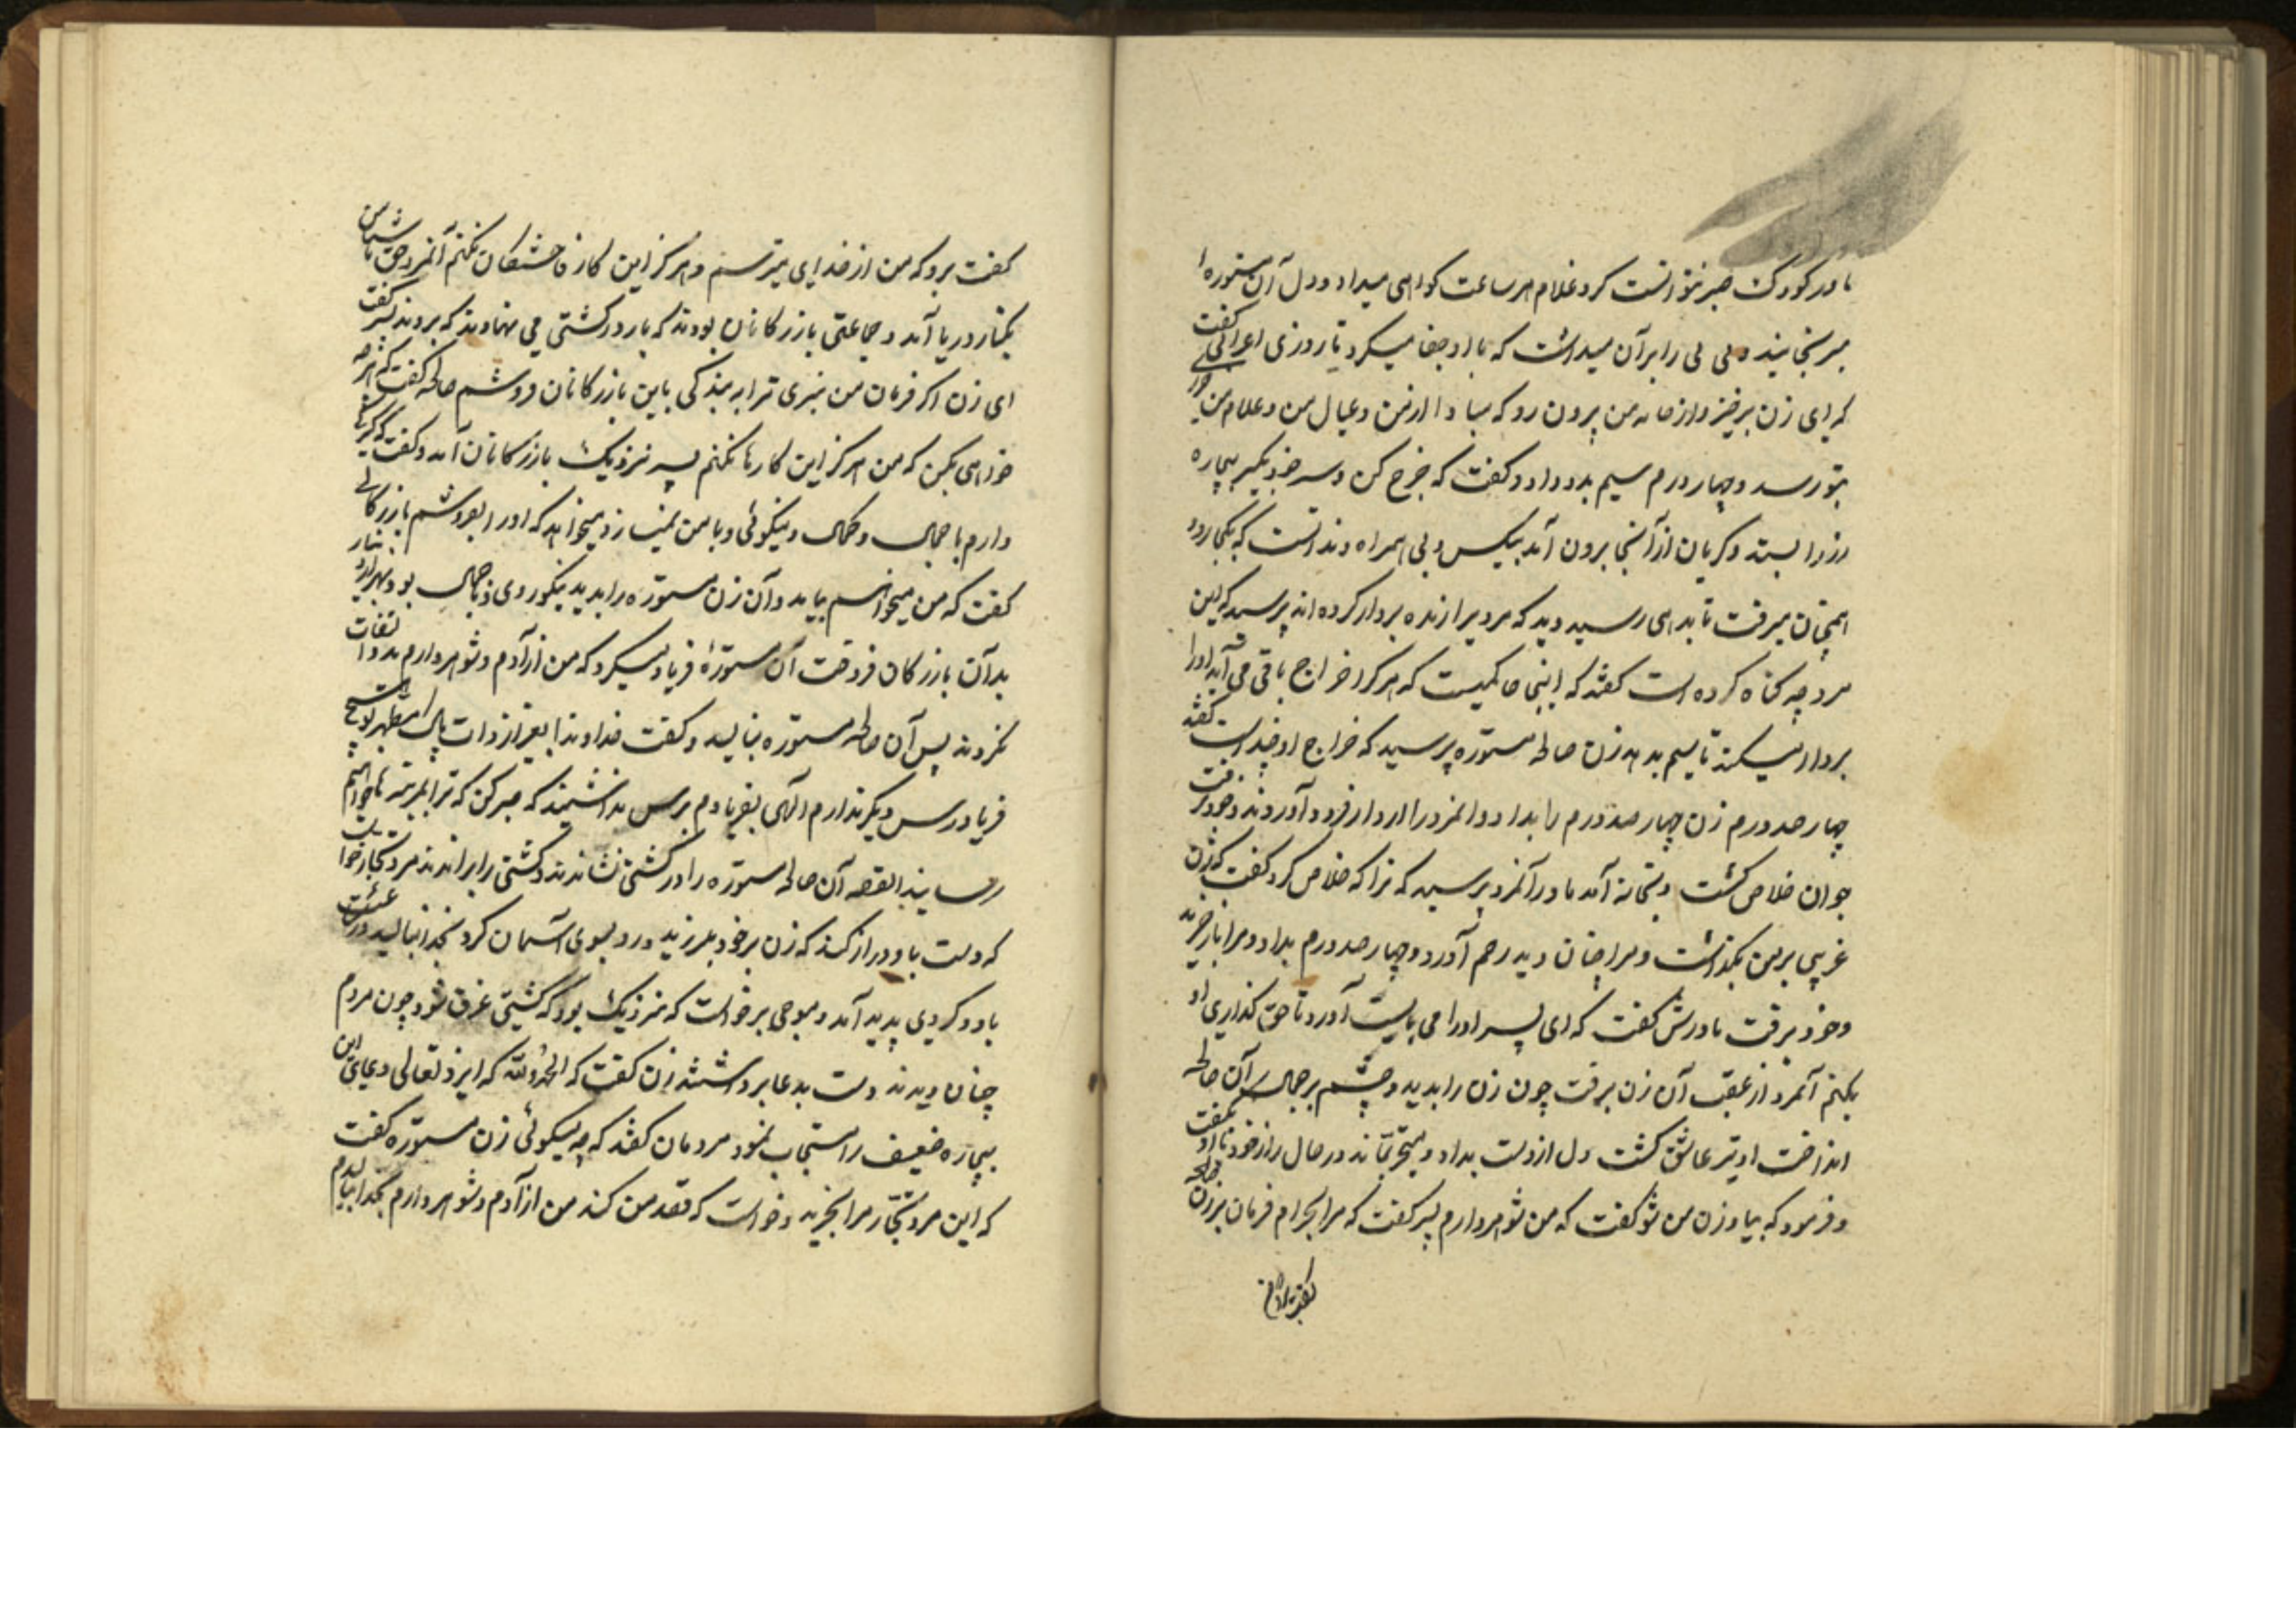 مادر کودک صبر نتوانست کرد غلام هر ساعت کواهی میداد و دل آن مستوره را
میرنجانید و بی بی را بر آن میداشت که با او جفا میکرد تا روزی اعرابی گفت
که ای زن برخیز و از خانه من بیرون رو که مبادا از من و عیال من و غلام من
بتو رسد و چهار درم سیم بدو داد و کفت که خرج کن و سر خود بکیر بیچاره
رز را بسته و کریان از آنجا برون آمد بیکس و بی همراه و ندانست که بکجا رود
همچنان میرفت تا بدهی رسید دید که مردیرا زنده بردار کرده اند پرسید که این
مرد چه کناه کرده است کفتند که اینجا حاکمیست که هر کرا خراج باقی می آید او را
بردار میکند تا سیم بدهد زن صالحه مستوره پرسید که خراج او چند است کفتند
چهار صد درم زن چهار صد درم را بداد و آنمرد را از دار فرود آوردند و خود برفت
جوان خلاص کشت و بخانه آمد مادر آنمرد پرسید که ترا که خلاص کرد کفت که زن
غریبی بر من بکذشت و مرا چنان دید رحم آورد و چهار صد درم بداد و مرا باز خرید
و خود برفت مادرش کفت که ای پسر او را می بایست آورد تا حق کذاری او
بکنم آنمرد از عقب آن زن برفت چون زن را بدید و چشم بر جمال آن صالحه
انداخت او نیز عاشق کشت دل از دست بداد و متحیر بماند در حال راز خود با او بکفت
و فرمود که بیا و زن من شو کفت که من شوهر دارم پسر کفت که مرا بحرام فرمان بر زن صالحه
کفت برو که من
کفت برو که من از خدای میترسم و هرکز این کار فاحشکان نکنم آنمرد حق ناشناس
بکنار دریا آمد و جماعتی بازرکانان بودند که بار در کشتی می نهادند که بروند پسر کفت
ای زن اکر فرمان من نبری ترا به بندکی باین بازرکانان فروشم صالحه کفت که هر چه
خواهی بکن که من هرکز این کارها نکنم پسر نزدیک بازرکانان آمد و کفت که کنیزکی
دارم با جمال و کمال و نیکوئی و با من نمیسازد میخواهم که او را بفروشم بازرکانی
کفت که من میخواهم بیامد و آن زن مستوره را بدید نیکو روی و با جمال بود بهزار دینار
بدآن بازرکان فروخت آن مستوره فریاد میکرد که من آزادم و شوهر دارم بدو التفات
نکردند پس آن صالحه مستوره بنالید و کفت خداوندا بغیر از ذات پاک مطهر تو هیچ
فریادرس دیکر ندارم الهی بفریادم برس نداشنید که صبر کن که ترا بمرتبه خواهیم
رسانید القصه آن صالحه مستوره را در کشتی نشاندند و کشتی را براندند مرد تجار خواست
که دست باو دراز کند که زن بر خود بلرزید و رو بسوی آسمان کرد بخدا بنالید در ساعت
باد و کردی پدید آمد و موجی برخواست که نزدیک بود که کشتی غرق شود چون مردم
چنان دیدند دست بدعا برداشتند زن کفت که الحمد لله که ایزد تعالی دعای این
بیچاره ضعیف را مستجاب نمود مردمان کفتند که چه میکوئی زن مستوره کفت
که این مرد تجار مرا بخرید و خواست که قصد من کند من آزادم و شوهر دارم بخدا بنالیدم